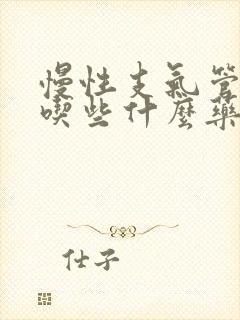 慢性支氣管
喫些什麼藥
仕子